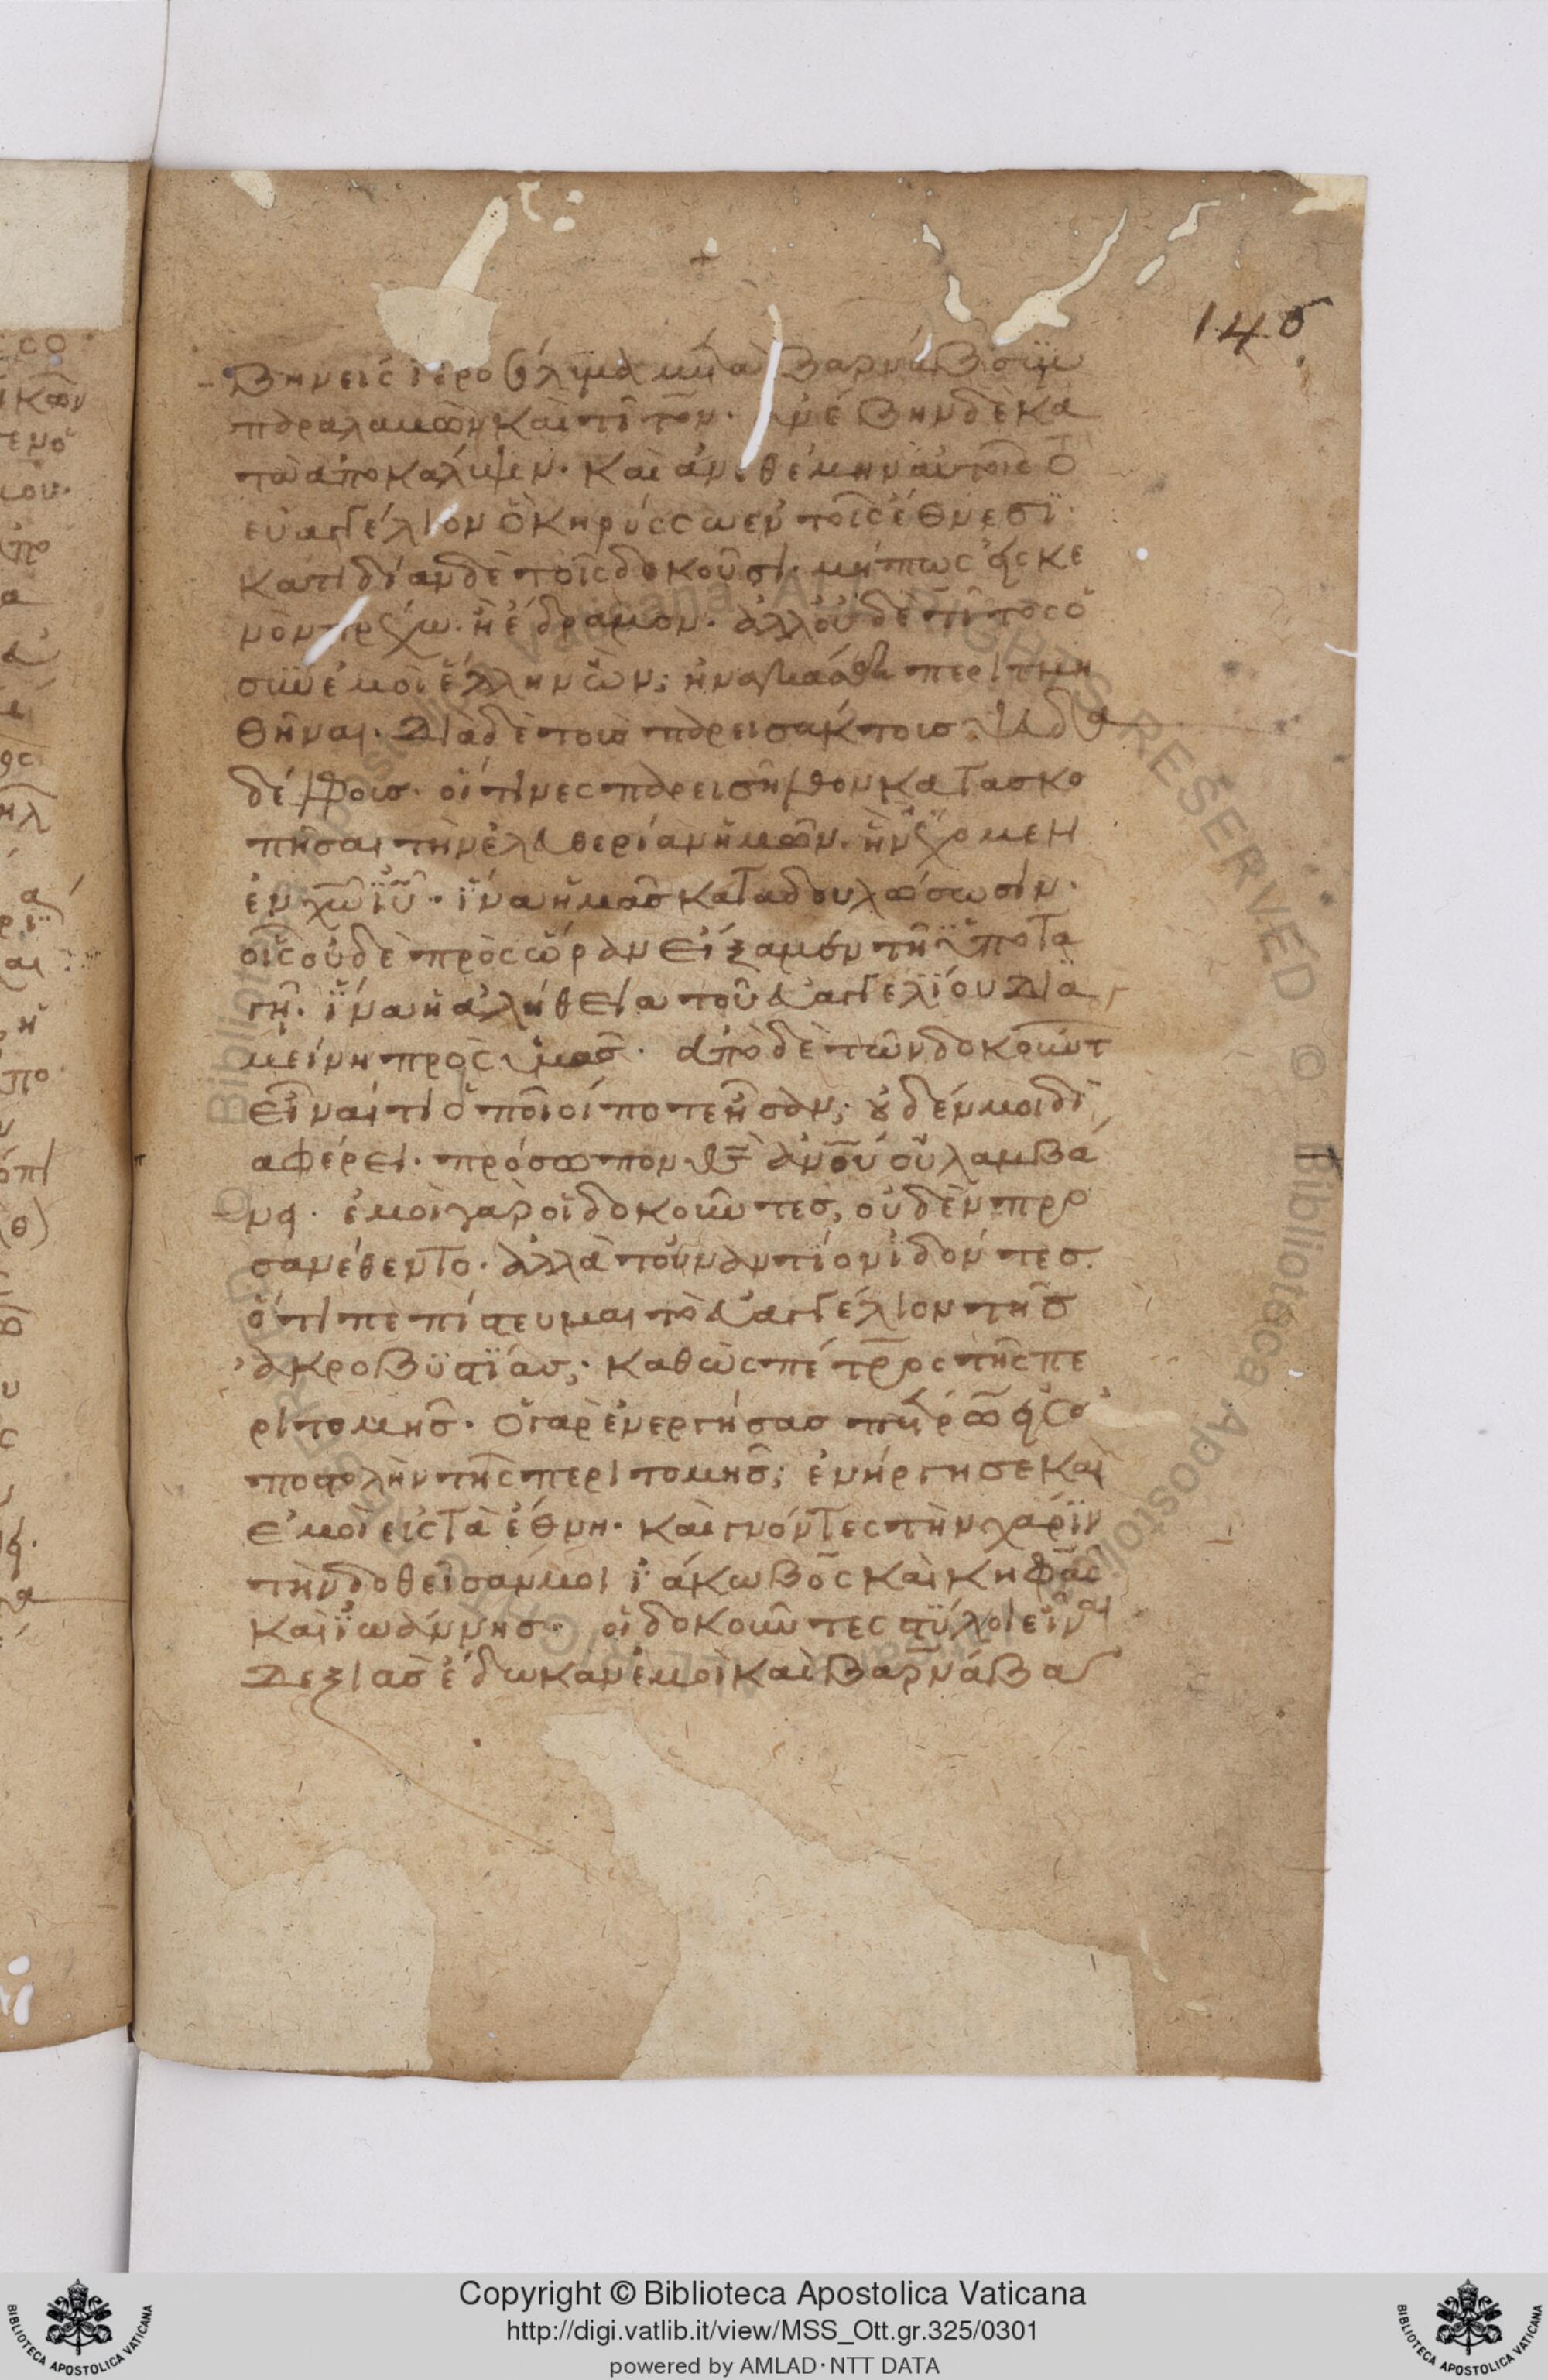 145
βην εἰς ἱεροσόλυμα μετὰ Βαρνάβα συμ
παραλαβὼν καὶ τίτον. ἀνέβην δὲ κα
τὰ ἀποκάλυψιν. καὶ ἀνεθέμην αὐτοῖς τὸ
εὐαγγέλιον ὃ κηρύσσω ἐν τοῖς ἔθνεσι.
κατιδίαν δὲ τοῖς δοκοῦσι. μήπως εἰς κε
νὸν τρέχω. ἢ ἔδραμον. ἀλλ' οὐδὲ τίτος ὁ
σὺν ἐμοὶ ἕλλην ὢν; ἠναγκάσθη περιτμη
θῆναι. διὰ δὲ τοὺς παρεισάκτους ψευδα
δέλφους. οἵτινες παρεισῆλθον κατασκο
πῆσαι τὴν ἐλευθερίαν ἡμῶν. ἣν ἔχομεν
ἐν χῶ ἰῦ. ἵνα ἡμᾶς καταδουλώσωσιν.
οἷς οὐδὲ πρὸς ὥραν εἴξαμεν τῇ ὑποτα
γῇ. ἵνα ἡ ἀλήθεια τοῦ εὐαγγελίου δια
μείνη πρὸς ὑμᾶς. ἀπὸ δὲ τῶν δοκούντ
εἶναί τι ὁποῖοί ποτε ἦσαν; οὐδέν μοι δι
αφέρει. πρόσωπον θς ἀνου οὐ λαμβά
νει. ἐμοὶ γὰρ οἱ δοκοῦντες, οὐδὲν προ
σανέθεντο. ἀλλὰ τοὐναντίον ἰδόντες.
ὅτι πεπίστευμαι τὸ εὐαγγέλιον τῆς
ἀκροβυστίας; καθὼς πέτρος τῆς πε
ριτομῆς. ὁ γὰρ ἐνεργήσας πέτρω εἰς ἀ
ποστολὴν τῆς περιτομῆς; ἐνήργησε καὶ
ἐμοὶ εἰς τὰ ἔθνη. καὶ γνόντες τὴν χάριν
τὴν δοθεῖσάν μοι ἰάκωβος καὶ κηφᾶς
καὶ ἰωάννης. οἱ δοκοῦντες στύλοι εἶναι
δεξιὰς ἔδωκαν ἐμοὶ καὶ Βαρνάβα
Copyright © Biblioteca Apostolica Vaticana
http://digi.vatlib.it/view/MSS_Ott.gr.325/0301
powered by AMLAD·NTT DATA